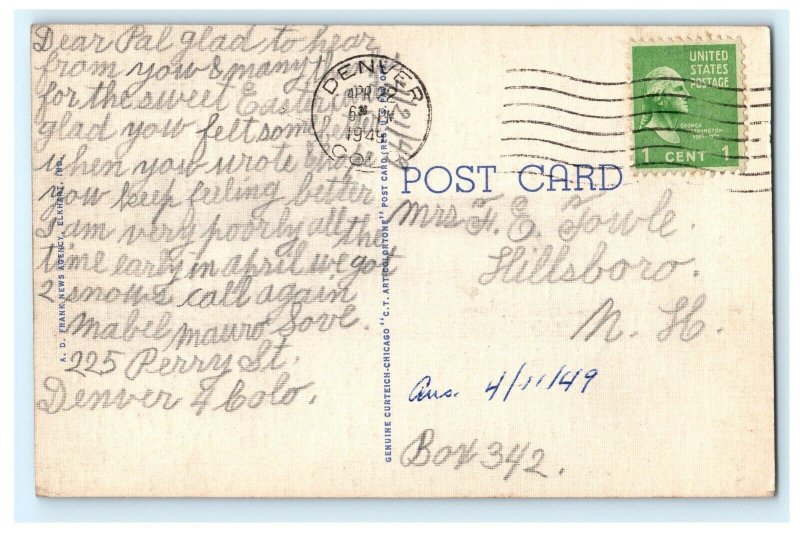 Dear Pal glad to hear
from you & many thanks
for the sweet Easter card
glad you felt some better
when you wrote hope
you keep feeling better
I am very poorly all the
time early in april we got
2 snows call again
Mabel Mauro Love.
225 Perry St.
Denver 4 Colo.
A. D. FRANK NEWS AGENCY, ELKHART, IND.
GENUINE CURTEICH-CHICAGO "C.T. ART-COLORTONE" POST CARD (REG. U.S. PAT. OFF.)
DENVER
APR
1949
COLO.
UNITED
STATES
POSTAGE
GEORGE
WASHINGTON
1 CENT 1
POST CARD
Mrs. F. E. Towle.
Hillsboro.
N. H.
Ans. 4/11/49
Box 342.